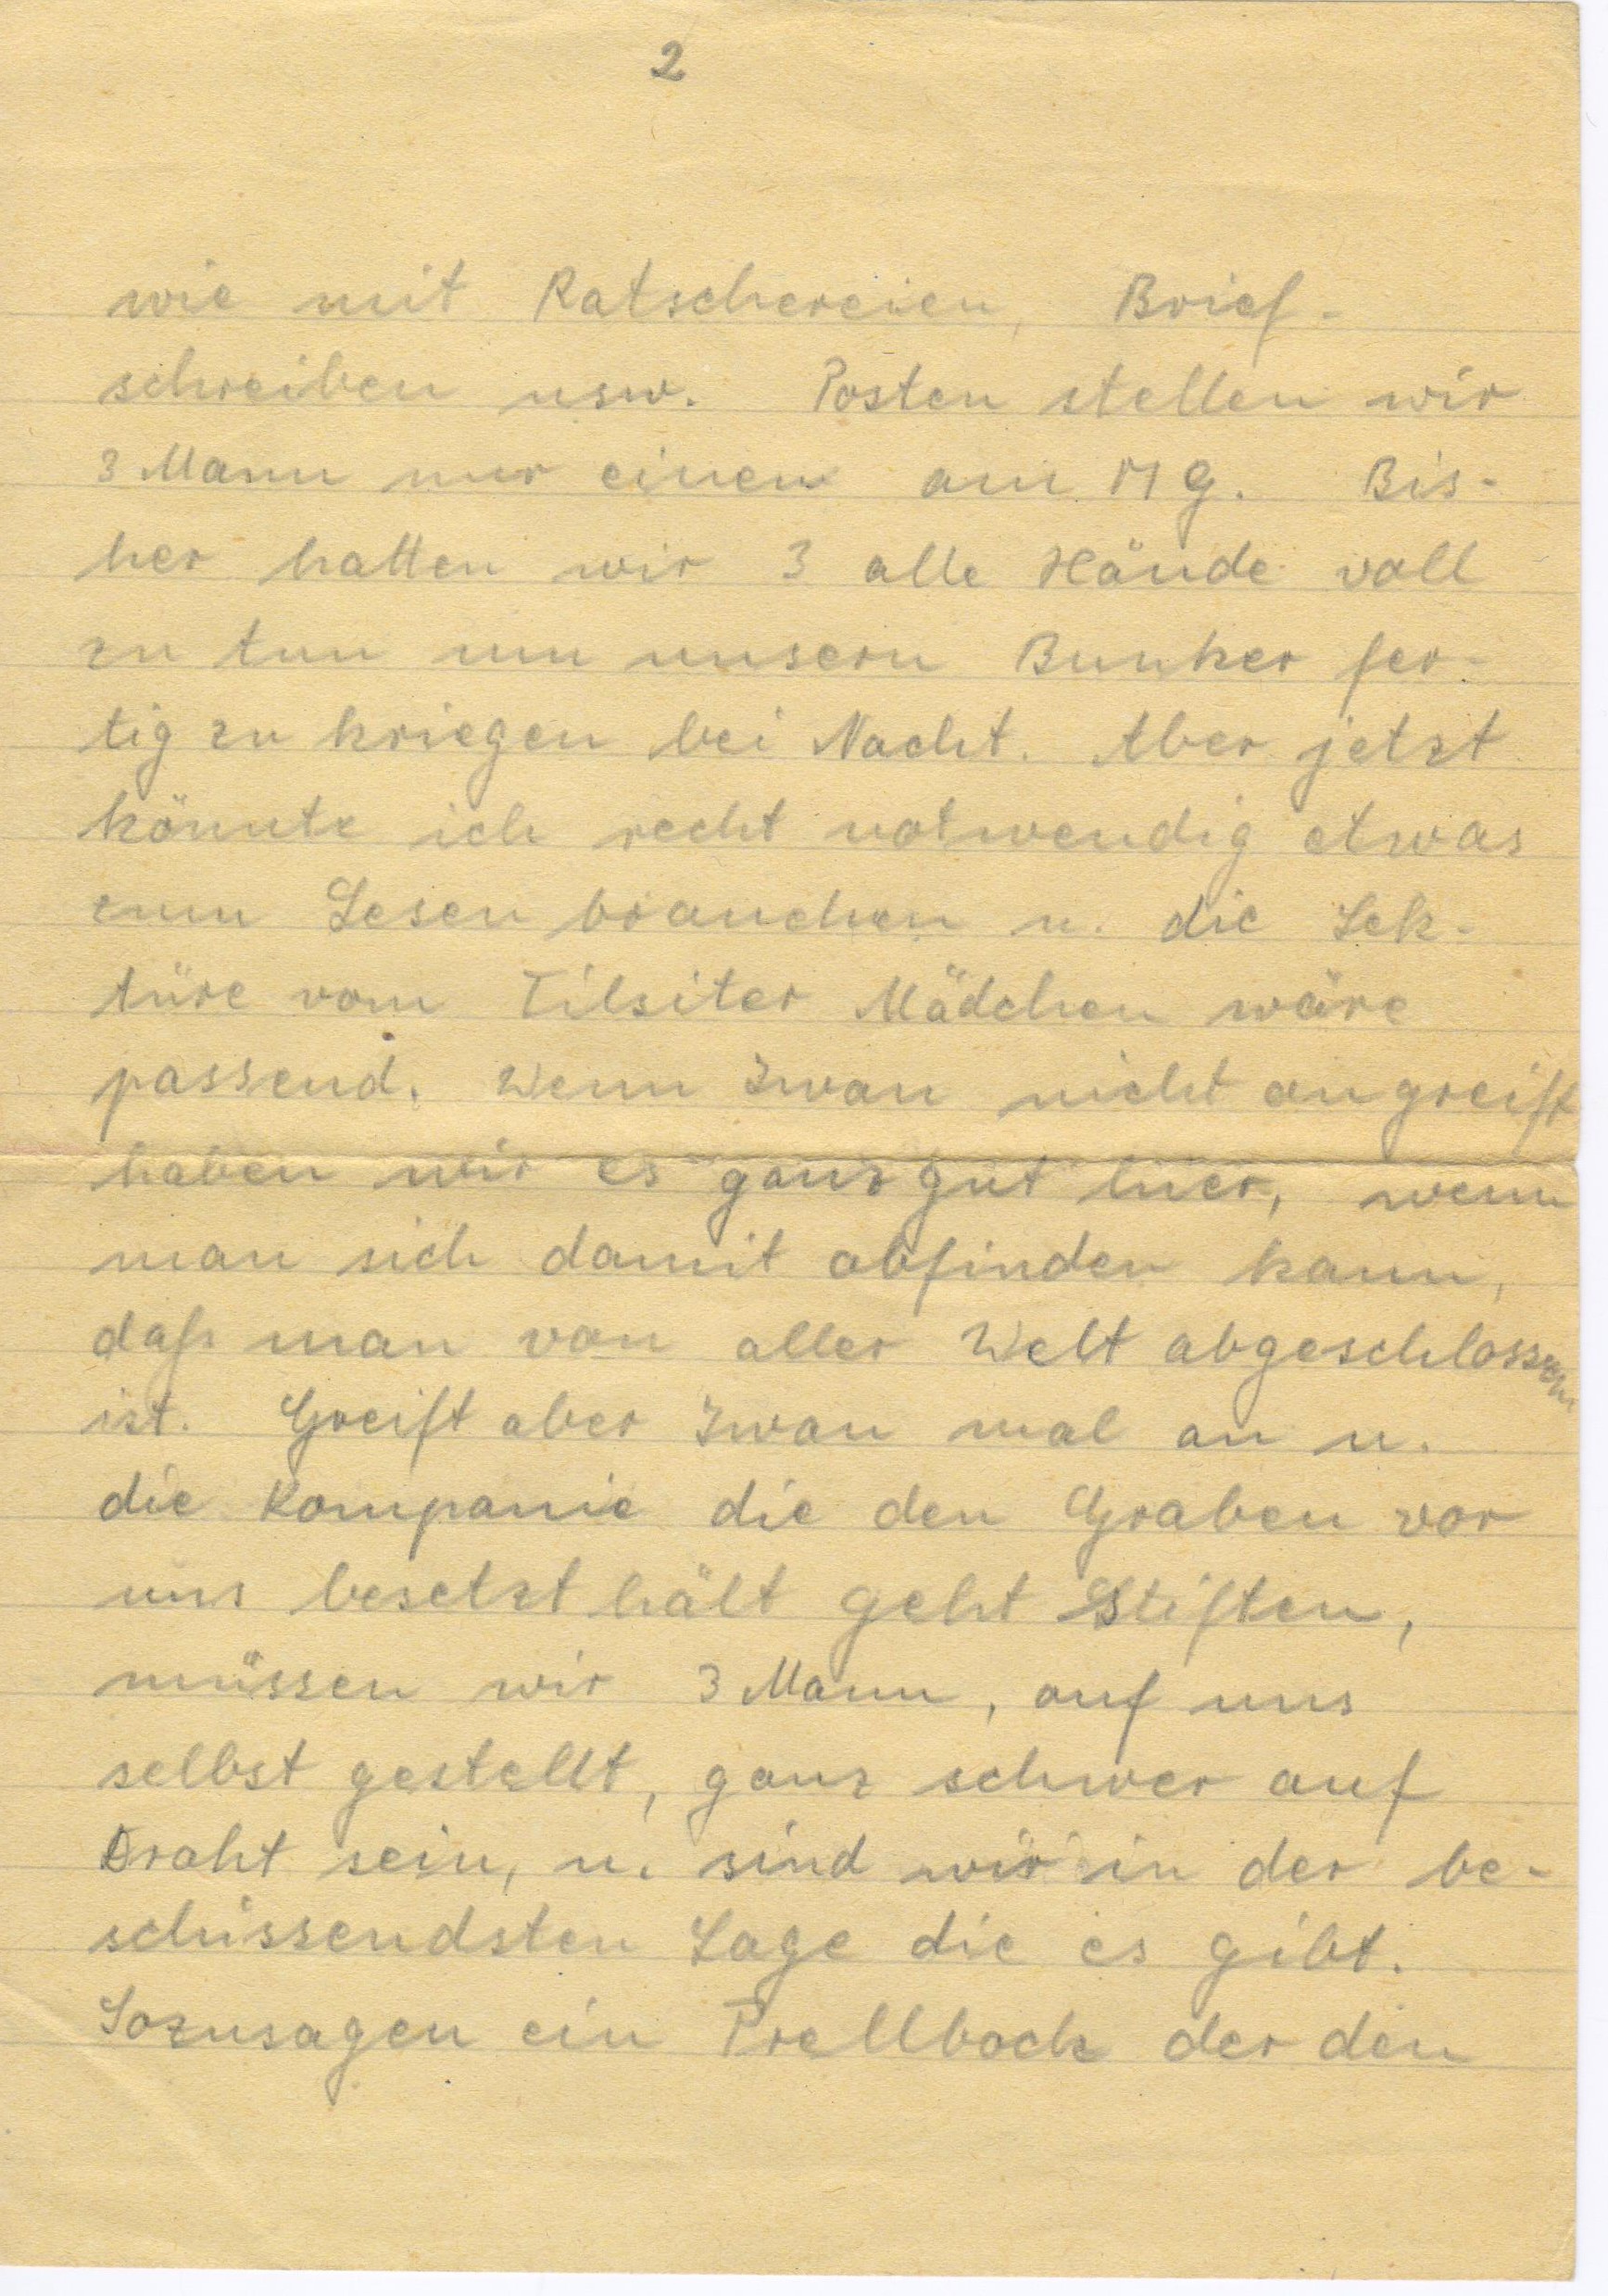 2
wie mit Ratschereien, Brief-
schreiben usw. Posten stellen wir
3 Mann nur einen am MG. Bis-
her hatten wir 3 alle Hände voll
zu tun um unsern Bunker fer-
tig zu kriegen bei Nacht. Aber jetzt
könnte ich recht notwendig etwas
zum Lesen brauchen u. die Lek-
türe vom Tilsiter Mädchen wäre
passend. Wenn Iwan nicht angreift
haben wir es ganz gut hier, wenn
man sich damit abfinden kann,
daß man von aller Welt abgeschlossen
ist. Greift aber Iwan mal an u.
die Kompanie die den Graben vor
uns besetzt hält geht Stiften,
müssen wir 3 Mann, auf uns
selbst gestellt, ganz schwer auf
Draht sein, u. sind wir in der be-
schissendsten Lage die es gibt.
Sozusagen ein Prellbock der den